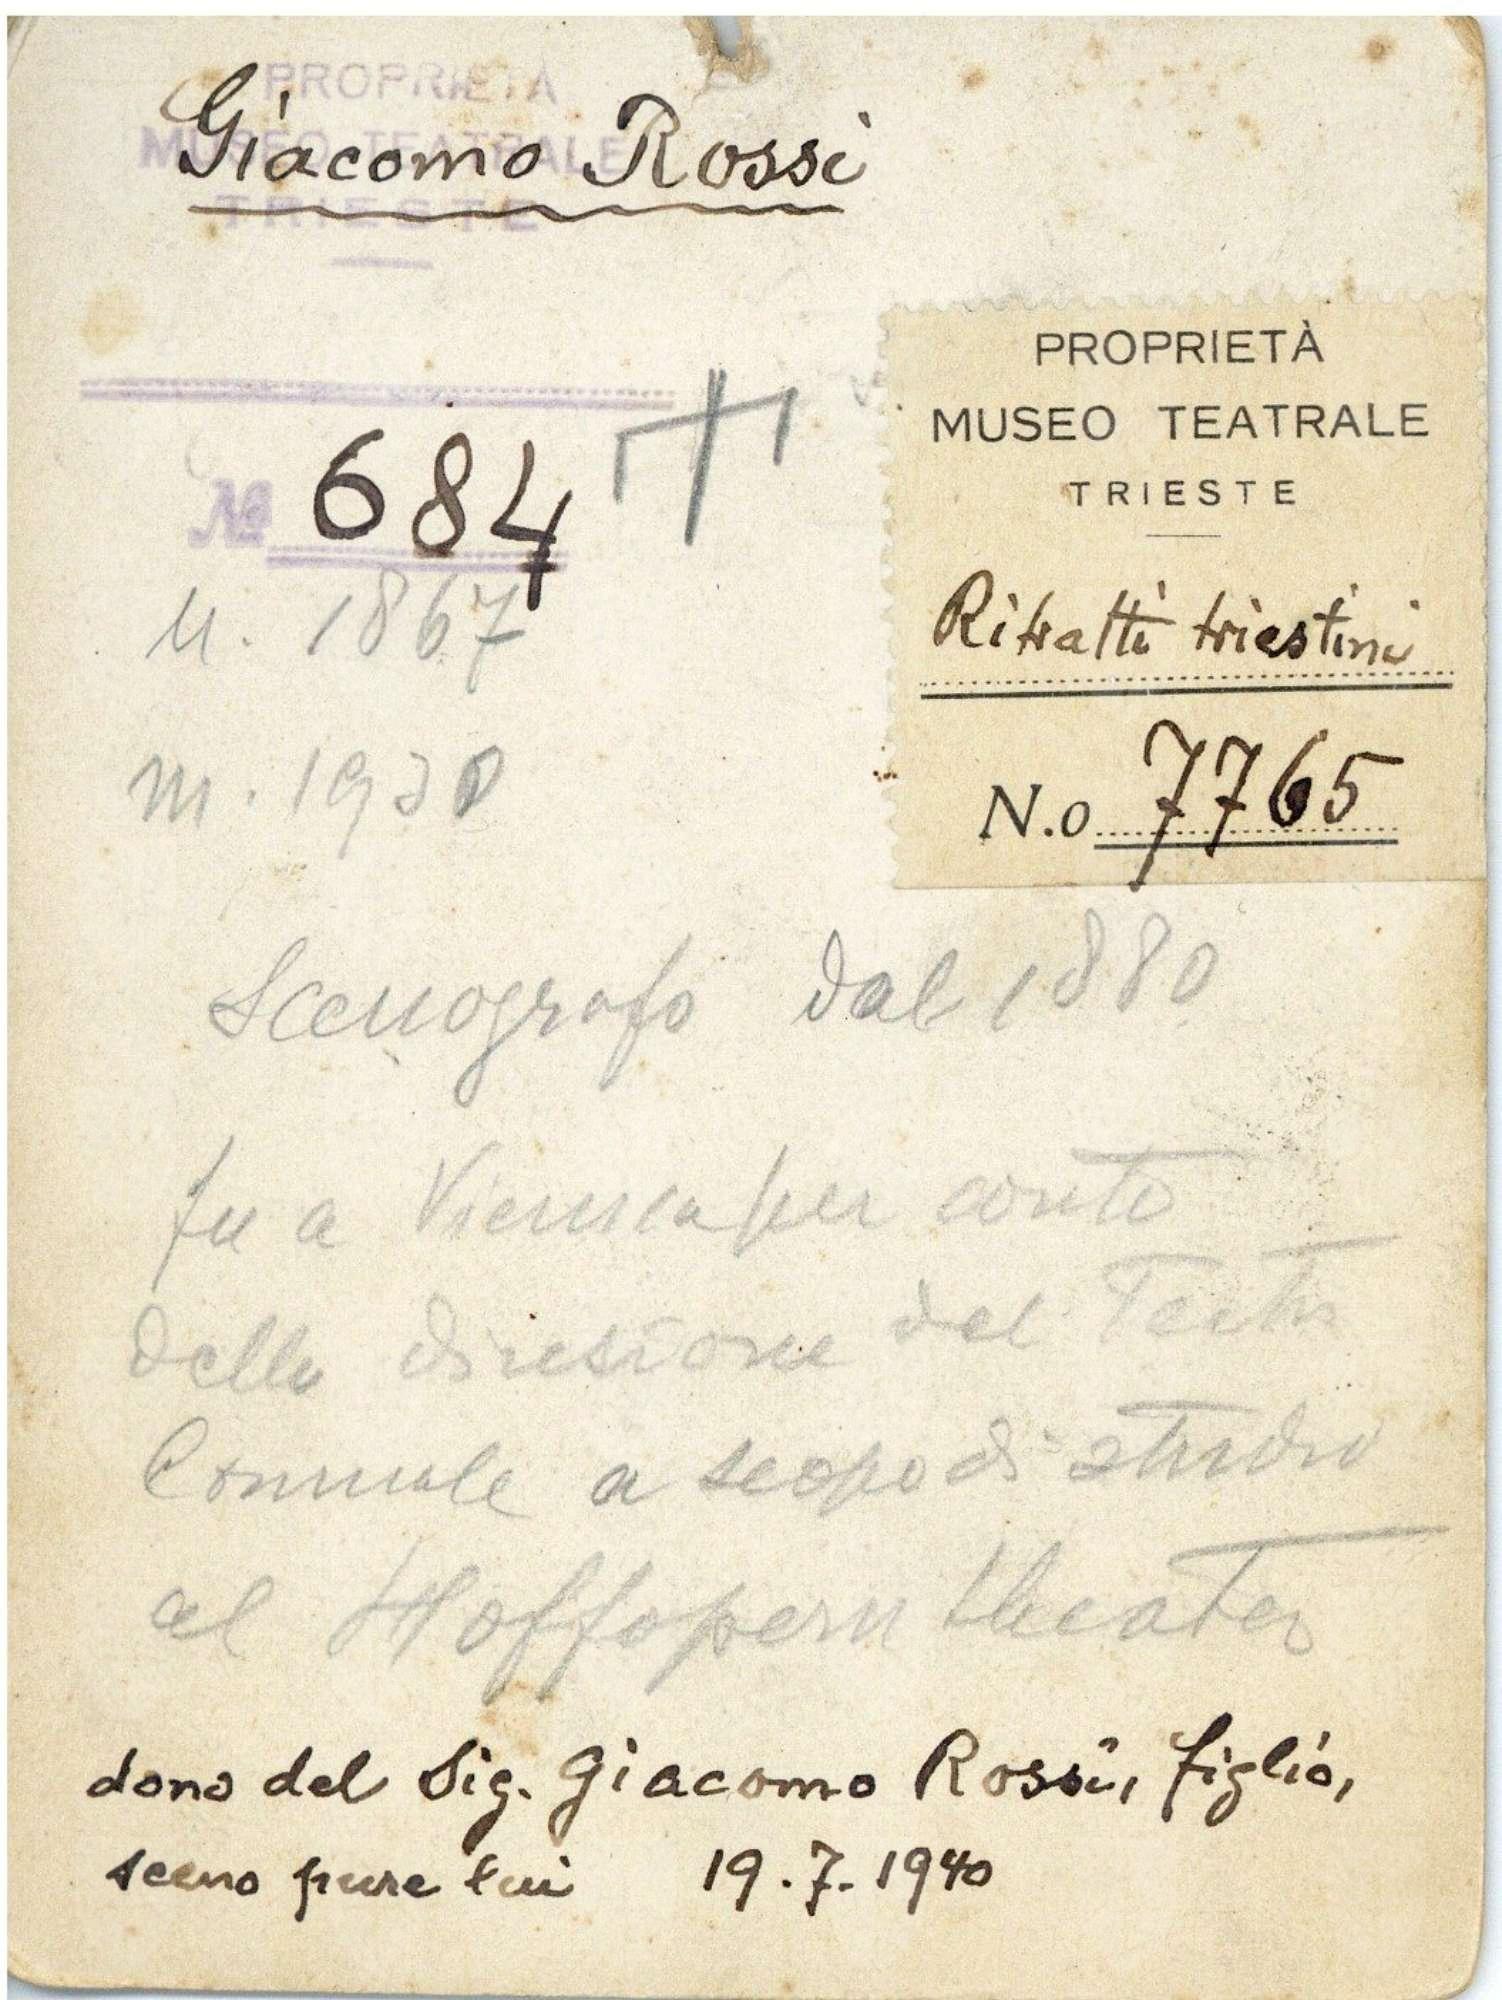 PROPRIETÀ
MUSEO TEATRALE
TRIESTE
Giacomo Rossi
No 684
n. 1867
m. 1930
PROPRIETÀ
MUSEO TEATRALE
TRIESTE
Ritratti triestini
N.o 7765
Scenografo dal 1880
fu a Vienna per conto
della direzione del Teatro
Comunale a scopo di studio
al Hoffopern theater
dono del Sig. Giacomo Rossi, figlio,
sceno pure lui 19.7.1940